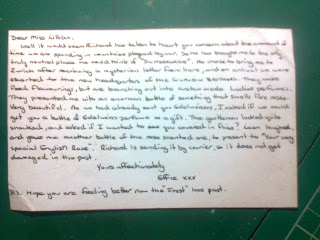 Dear Miss
Well it would seem Richard has taken to heart your concern about the amount of
time we are spending in countries plagued by war. So he has brought me to the only
truly neutral place he could think of "Switzerland". He chose to bring me to
Zurich after receiving a mysterious letter from here, and on arrival we were
escorted to the new headquarters of the Givaudan brothers. They make
Food flavourings, but are branching out into custom made ladies perfumes.
They presented me with an enormous bottle of something that smells like roses.
Very beautiful. As we had already sent you Edelweiss, I asked if we could
get you a bottle of Edelweiss perfume as a gift. The gentlemen looked quite
shocked, and asked if I wanted to see you covered in flies. Leon laughed,
and gave me another bottle of the rose scented one, to present to "Your very
special English Rose". Richard is sending it by courier, so it does not get
damaged in the post.
Yours affectionately
Effie xxx
P.S. Hope you are feeling better now the "Frost" has past.